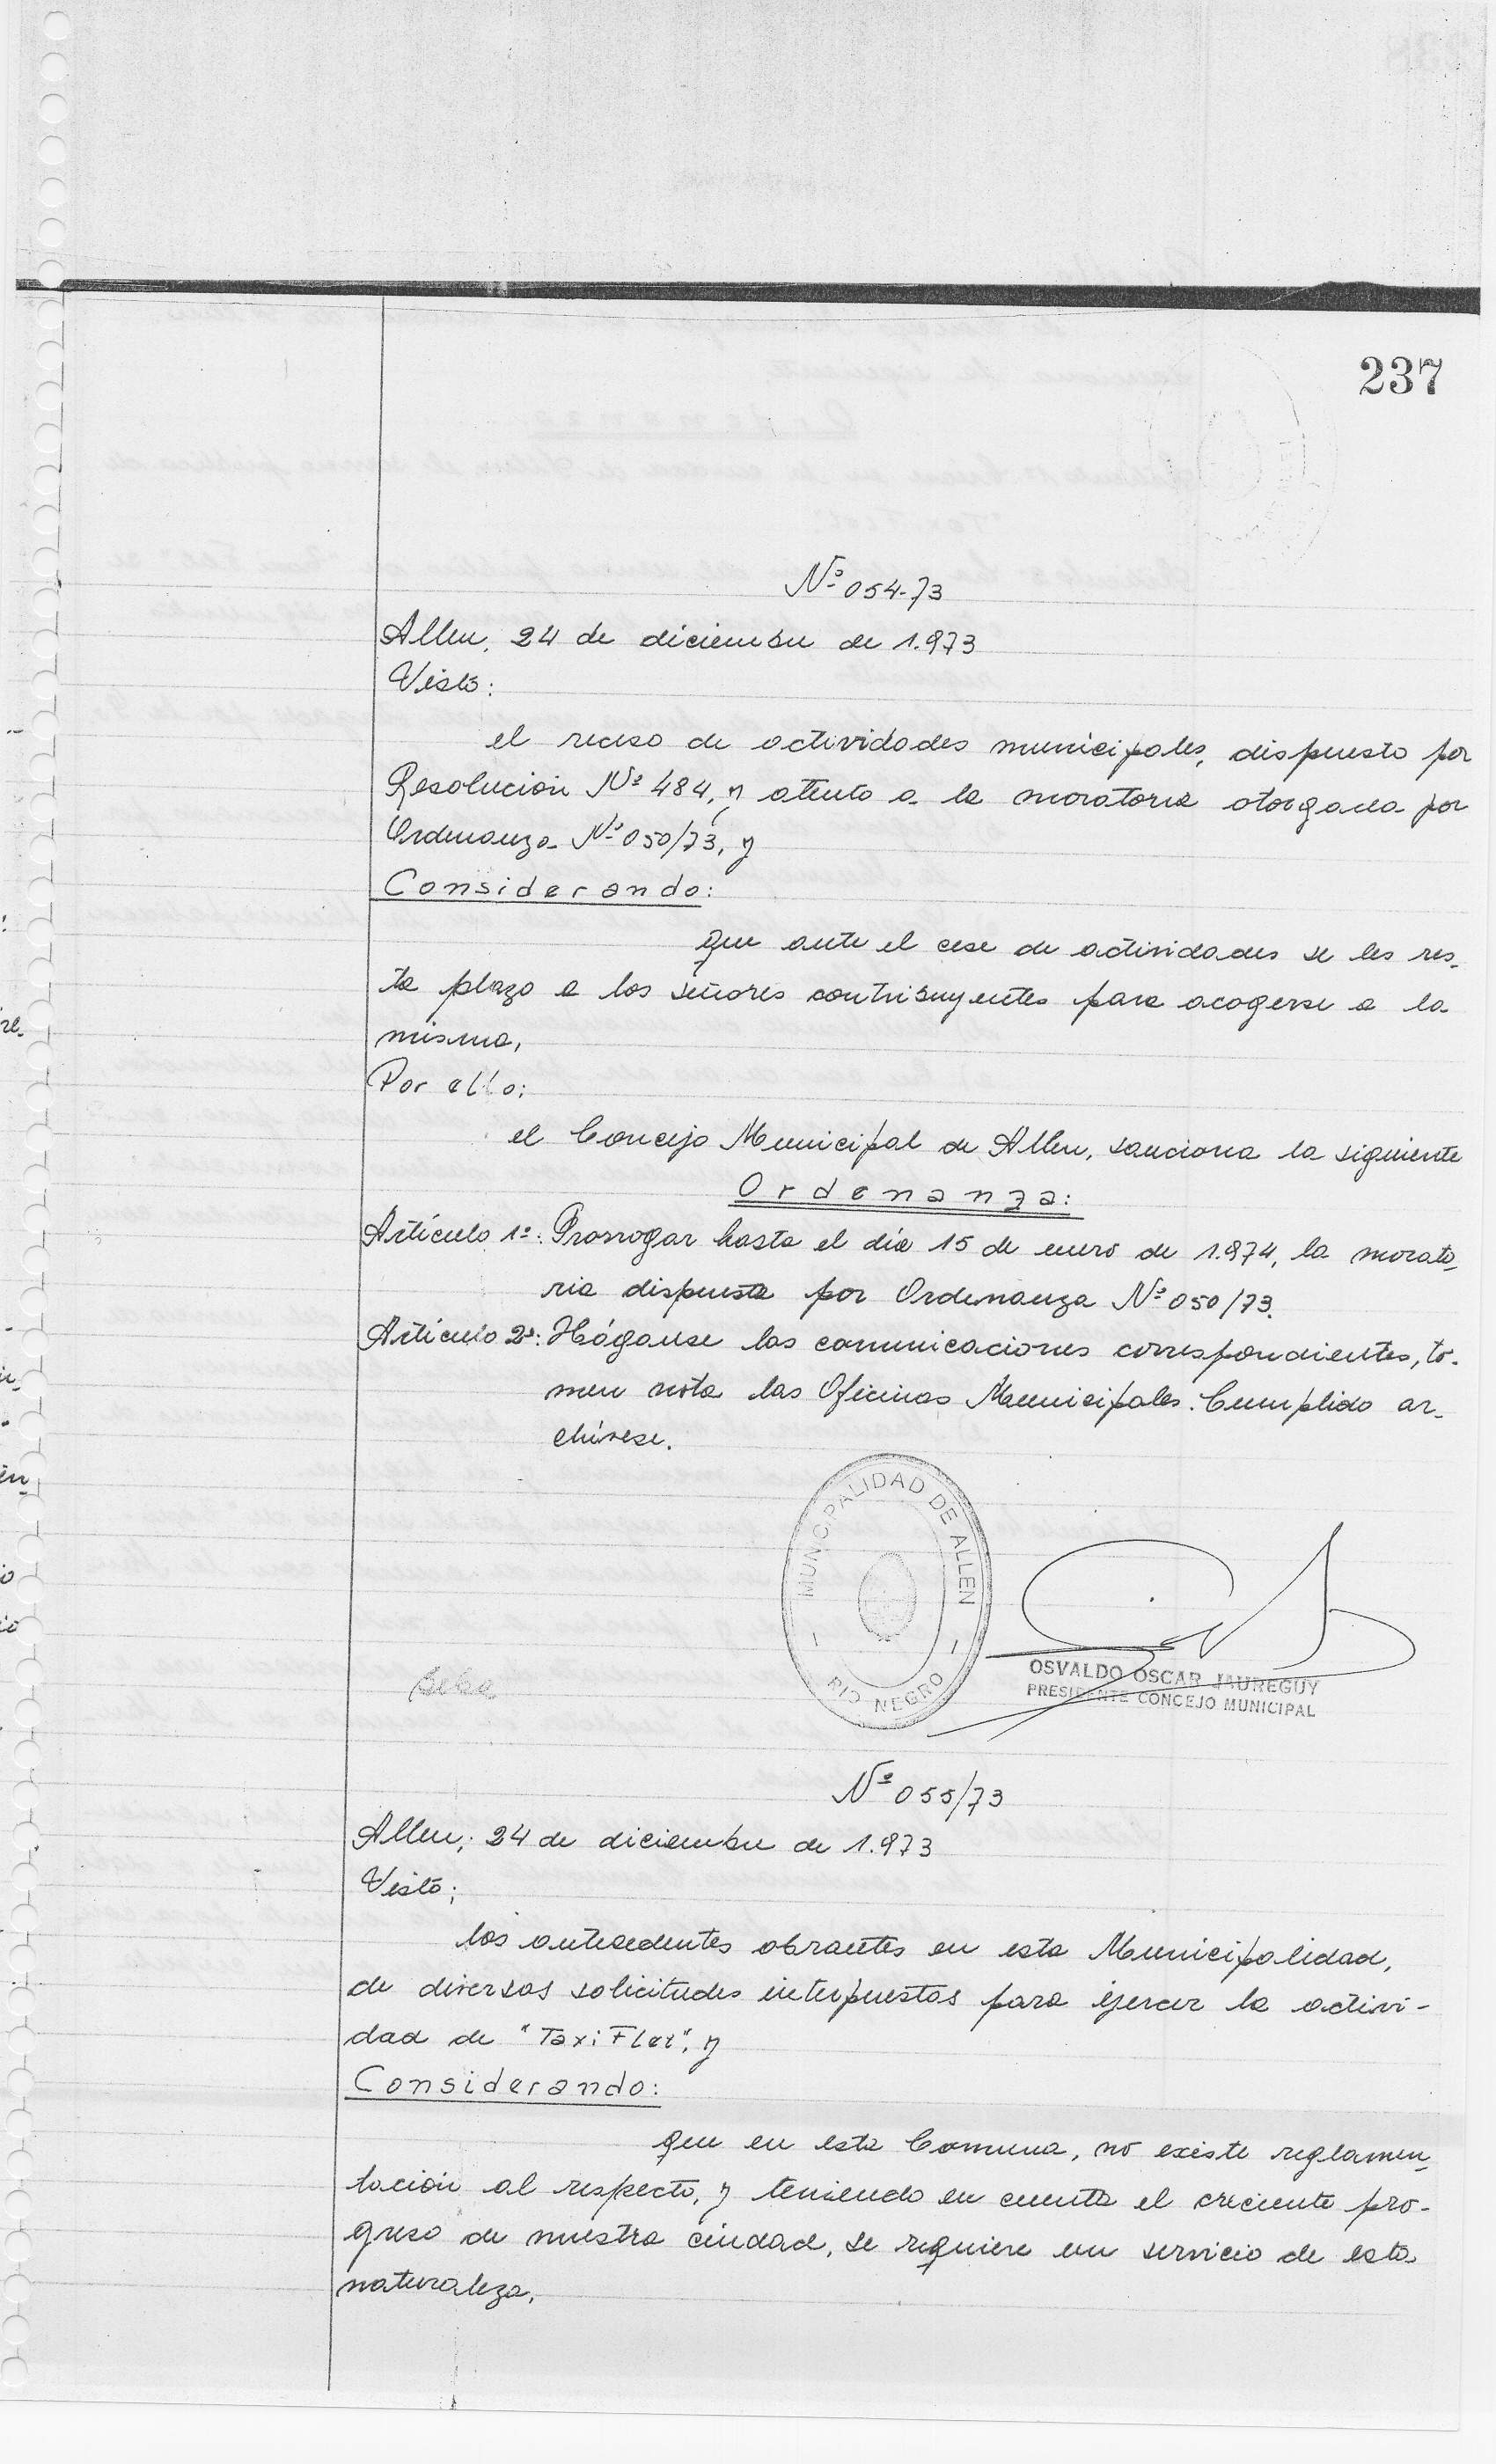 237
Nº 054-73
Allen, 24 de diciembre de 1.973
Visto:
el receso de actividades municipales, dispuesto por
Resolución Nº 484, y atento a la moratoria otorgada por
Ordenanza Nº 050/73, y
Considerando:
que ante el cese de actividades se les res-
ta plazo a los señores contribuyentes para acogerse a la
misma,
Por ello:
el Concejo Municipal de Allen, sanciona la siguiente
Ordenanza:
Artículo 1º: Prorrogar hasta el día 15 de enero de 1.974, la morato-
ria dispuesta por Ordenanza Nº 050/73.
Artículo 2º: Háganse las comunicaciones correspondientes, to-
men nota las Oficinas Municipales. Cumplido ar-
chívese.
MUNICIPALIDAD DE ALLEN
- RIO NEGRO -
OSVALDO OSCAR JAUREGUY
PRESIDENTE CONCEJO MUNICIPAL
Nº 055/73
Allen, 24 de diciembre de 1.973
Visto;
los antecedentes obrantes en esta Municipalidad,
de diversas solicitudes interpuestas para ejercer la activi-
dad de "Taxi Flet", y
Considerando:
que en esta Comuna, no existe reglamen-
tación al respecto, y teniendo en cuenta el creciente pro-
greso de nuestra ciudad, se requiere un servicio de esta
naturaleza,